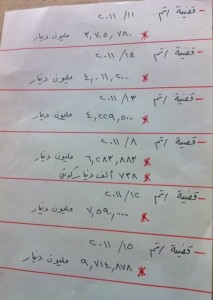 - قضية رقم ١١ / ٢٠١١
٣,٧٠٥,٧٨٠ مليون دينار
- قضية رقم ١٤ / ٢٠١١
٤,٠١١,٢٠٠ مليون دينار
- قضية رقم ١٣ / ٢٠١١
٤,٢٢٩,٥٠٠ مليون دينار
- قضية رقم ٨ / ٢٠١١
٦,٢٨٣,٨٨٣ مليون دينار
٧٣٨ الف دينار كويتي
- قضية رقم ١٢ / ٢٠١١
٧,٥٩٠,٠٠٠ مليون دينار
- قضية رقم ١٥ / ٢٠١١
٩,٧١٤,٨٧٨ مليون دينار